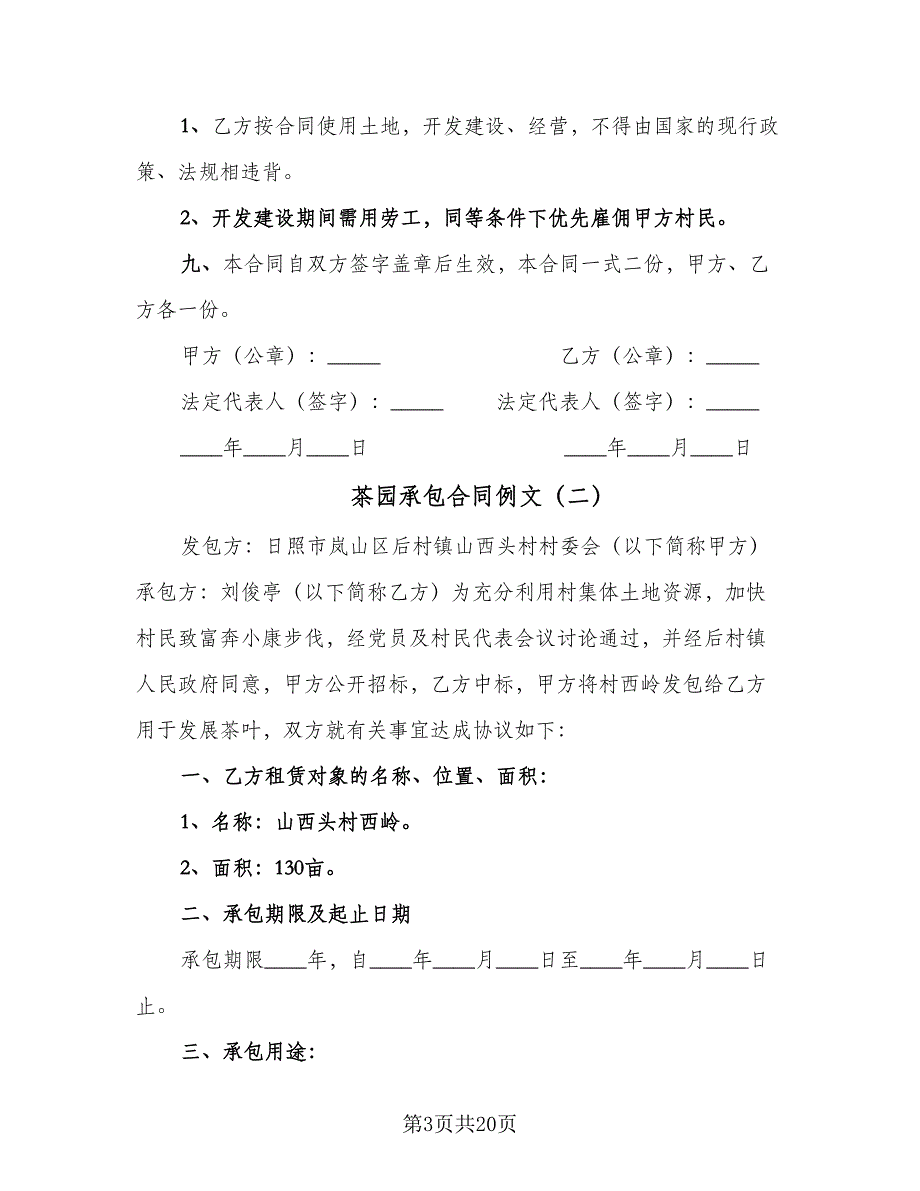 1、乙方按合同使用土地，开发建设、经营，不得由国家的现行政
策、法规相违背。
2、开发建设期间需用劳工，同等条件下优先雇佣甲方村民。
九、本合同自双方签字盖章后生效，本合同一式二份，甲方、乙
方各一份。
甲方（公章）：_____ 乙方（公章）：_____
法定代表人（签字）：_____ 法定代表人（签字）：_____
____年____月____日 ____年____月____日
茶园承包合同例文（二）
发包方：日照市岚山区后村镇山西头村村委会（以下简称甲方）
承包方：刘俊亭（以下简称乙方）为充分利用村集体土地资源，加快
村民致富奔小康步伐，经党员及村民代表会议讨论通过，并经后村镇
人民政府同意，甲方公开招标，乙方中标，甲方将村西岭发包给乙方
用于发展茶叶，双方就有关事宜达成协议如下：
一、乙方租赁对象的名称、位置、面积：
1、名称：山西头村西岭。
2、面积：130亩。
二、承包期限及起止日期
承包期限____年，自____年____月____日至____年____月____日
止。
三、承包用途：
第3页共20页